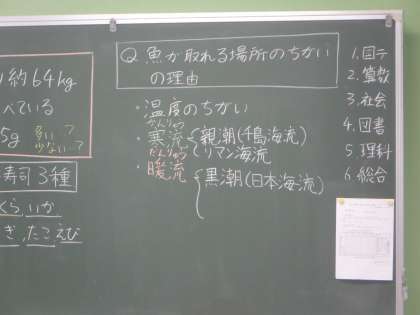 約64kg
べている
5g 多い?
少ない…?
寿司3種
くら,いか
ぎ,たこえび
Q 魚が取れる場所のちがい
の理由
・温度のちがい
かんりゅう
・寒流 親潮(千島海流)
リマン海流
だんりゅう
・暖流 黒潮(日本海流)
1.国テ
2.算数
3.社会
4.図書
5.理科
6.総合